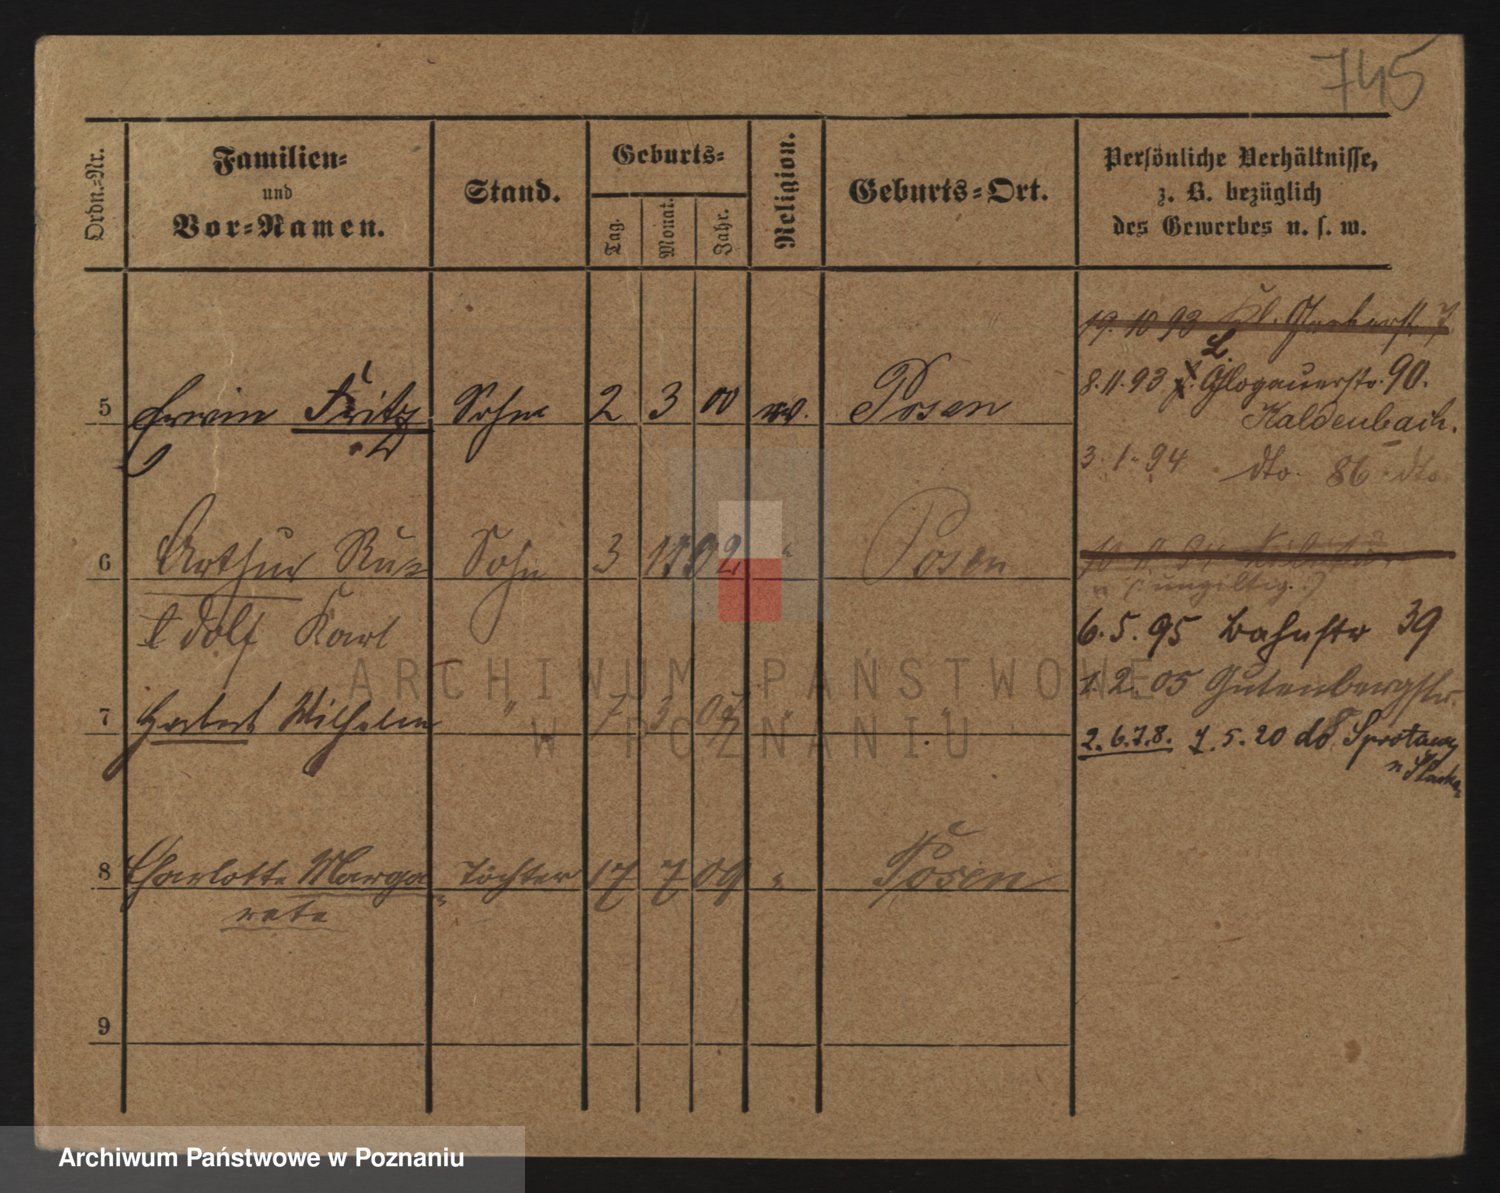 745
Ordn.-Nr.
Familien-
und
Vor-Namen.
Stand.
Geburts-
Tag.
Monat.
Jahr.
Religion.
Geburts-Ort.
Persönliche Verhältnisse,
z. B. bezüglich
des Gewerbes u. s. w.
19. 10 93 Kl. Gerberstr 7
8. 11. 93 Glogauerstr. 90.
Kaldenbach.
3. 1. 94 dto. 86 dto
5 Erwin Fritz Sohn 2 3 00 Posen
6 Arthur Ru- Sohn 3 1 02 " Posen
dolf Karl
(ungiltig.)
6. 5. 95 Bahnstr 39
1. 2. 05 Gutenbergstr.
7 Herbert Wilhelm " 7 3 07 " "
2. 6. 7. 8. 7. 5. 20 do Sprottau
8 Charlotte Marga- Tochter 17 7 09 " Posen
rete
9
ARCHIWUM PAŃSTWOWE
W POZNANIU
Archiwum Państwowe w Poznaniu